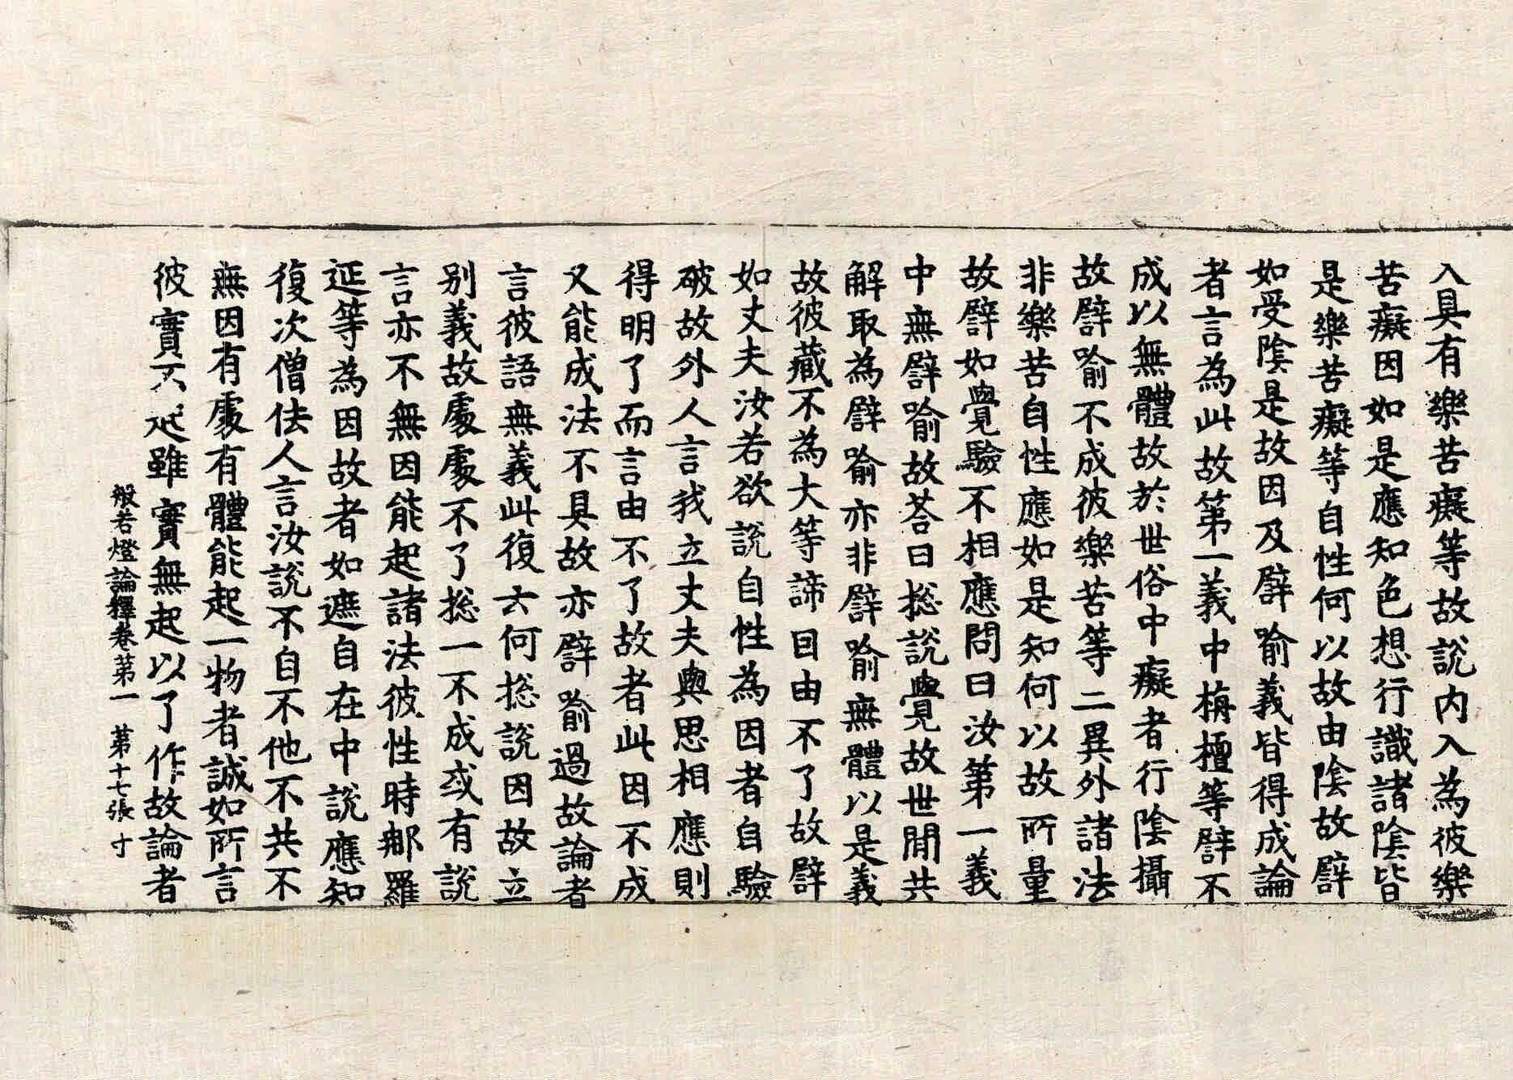 入具有樂苦癡等故說内入為彼樂
苦癡因如是應知色想行識諸陰皆
是樂苦癡等自性何以故由陰故譬
如受陰是故因及譬喻義皆得成論
者言為此故第一義中栴檀等譬不
成以無體故於世俗中癡者行陰攝
故譬喻不成彼樂苦等二異外諸法
非樂苦自性應如是知何以故所量
故譬如覺驗不相應問曰汝第一義
中無譬喻故荅曰揔說覺故世間共
解取為譬喻亦非譬喻無體以是義
故彼藏不為大等諦因由不了故譬
如丈夫汝若欲說自性為因者自驗
破故外人言我立丈夫與思相應則
得明了而言由不了故者此因不成
又能成法不具故亦譬喻過故論者
言彼語無義此復云何揔說因故立
别義故處處不了揔一不成或有說
言亦不無因能起諸法彼性時𨙻羅
延等為因故者如遮自在中說應知
復次僧佉人言汝說不自不他不共不
無因有處有體能起一物者誠如所言
彼實不起雖實無起以了作故論者
般若燈論釋卷第一　第十七張　寸